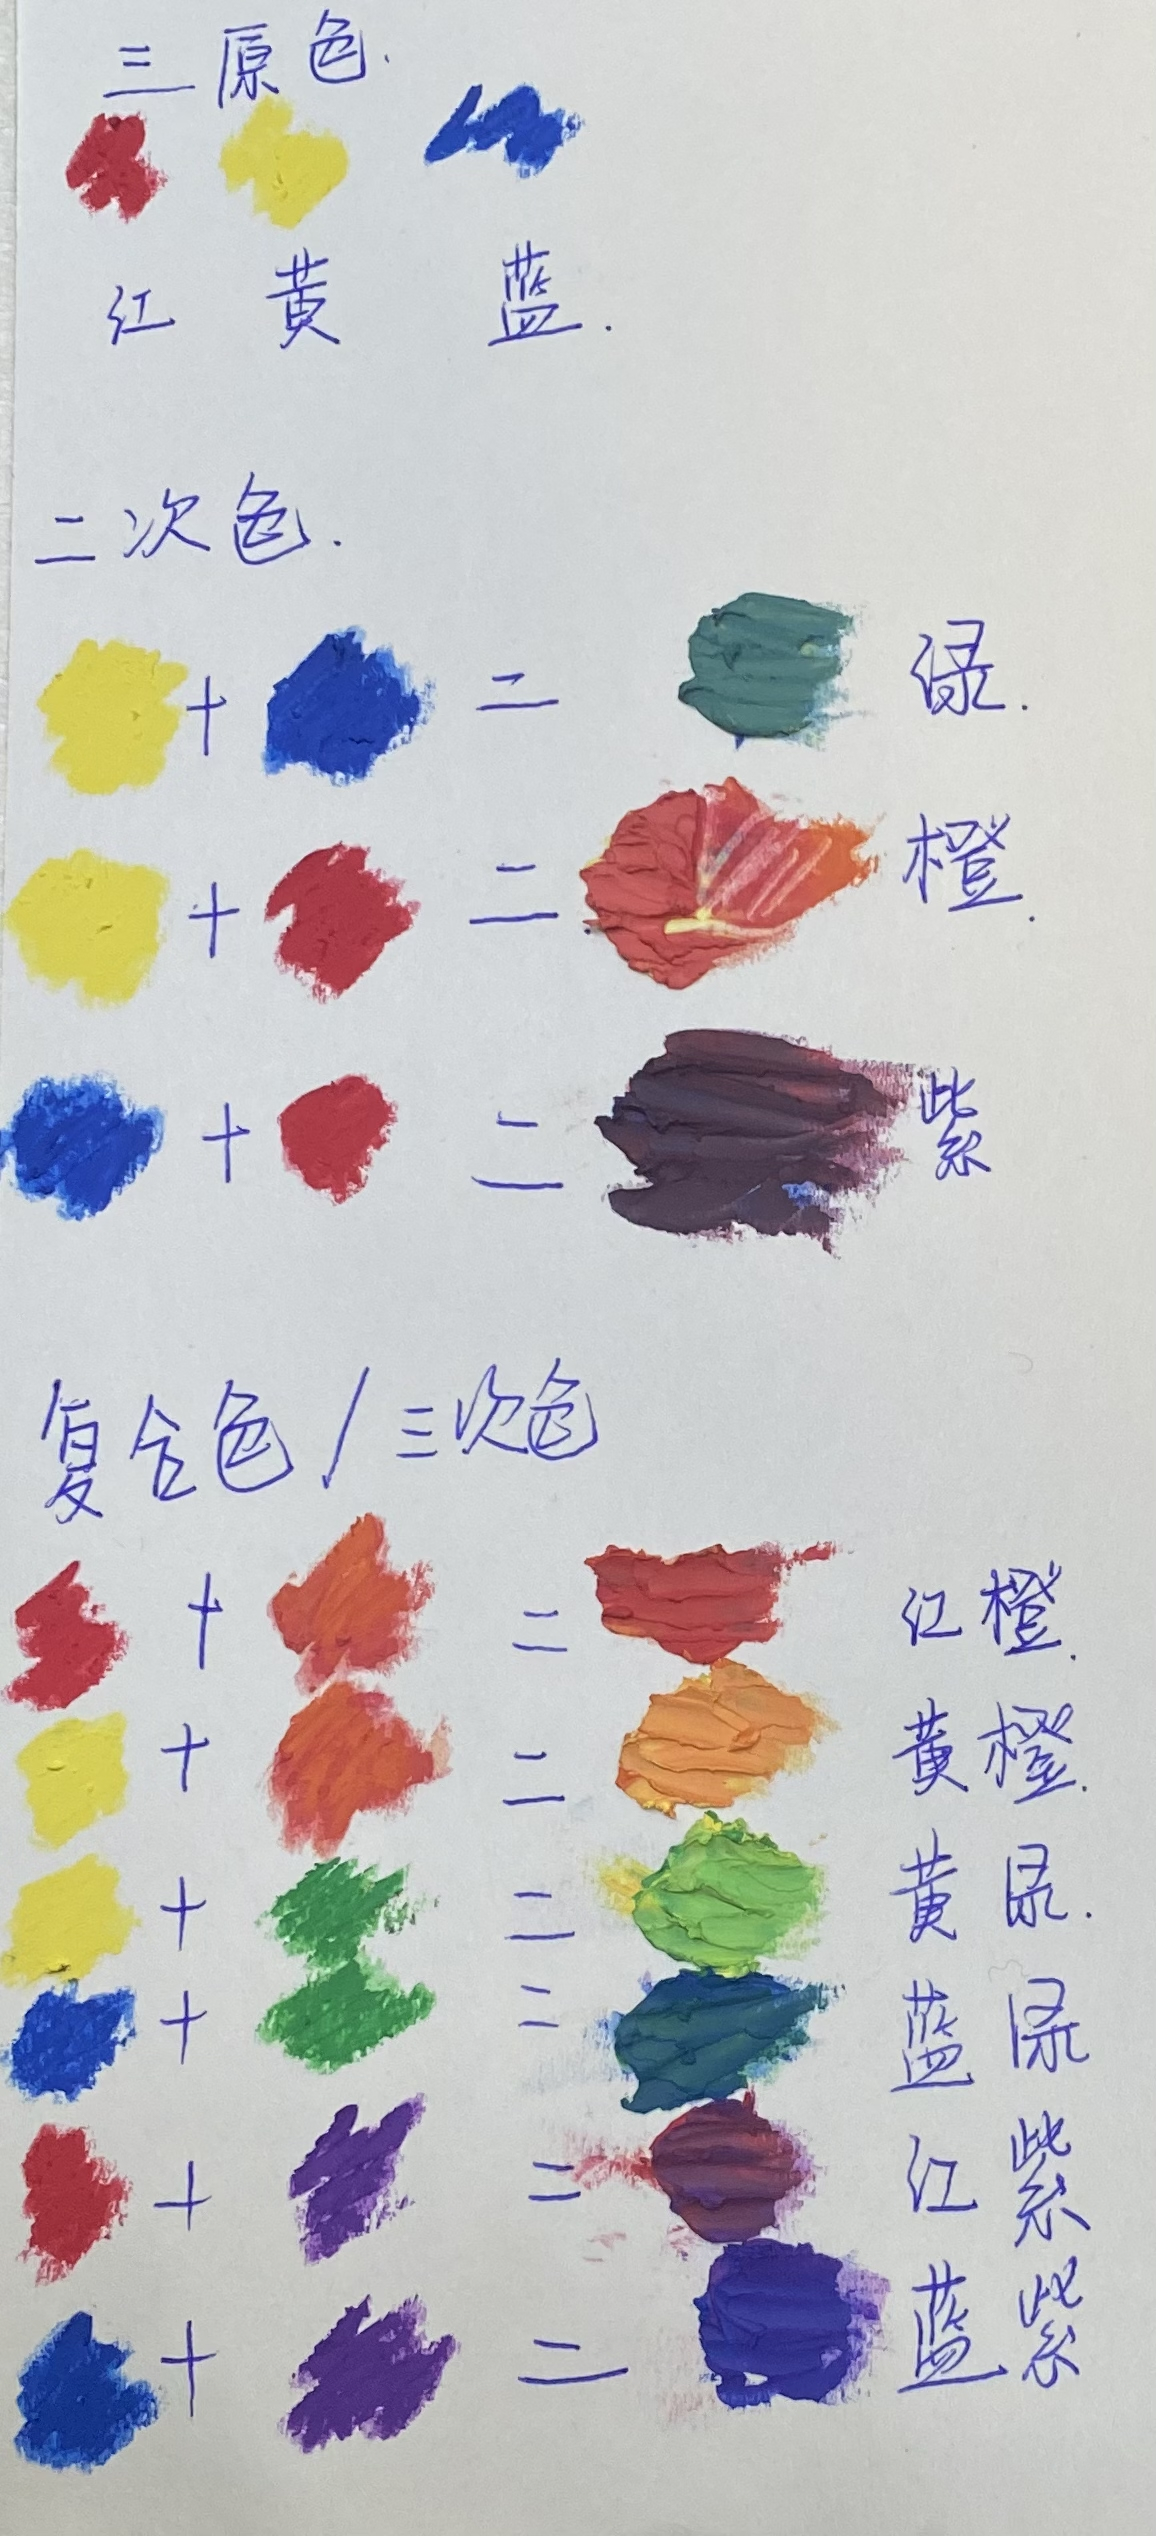 三原色.
红 黄 蓝.
二次色.
+ = 绿.
+ = 橙.
+ = 紫
复合色/三次色
+ = 红橙.
+ = 黄橙.
+ = 黄绿.
+ = 蓝绿
+ = 红紫
+ = 蓝紫